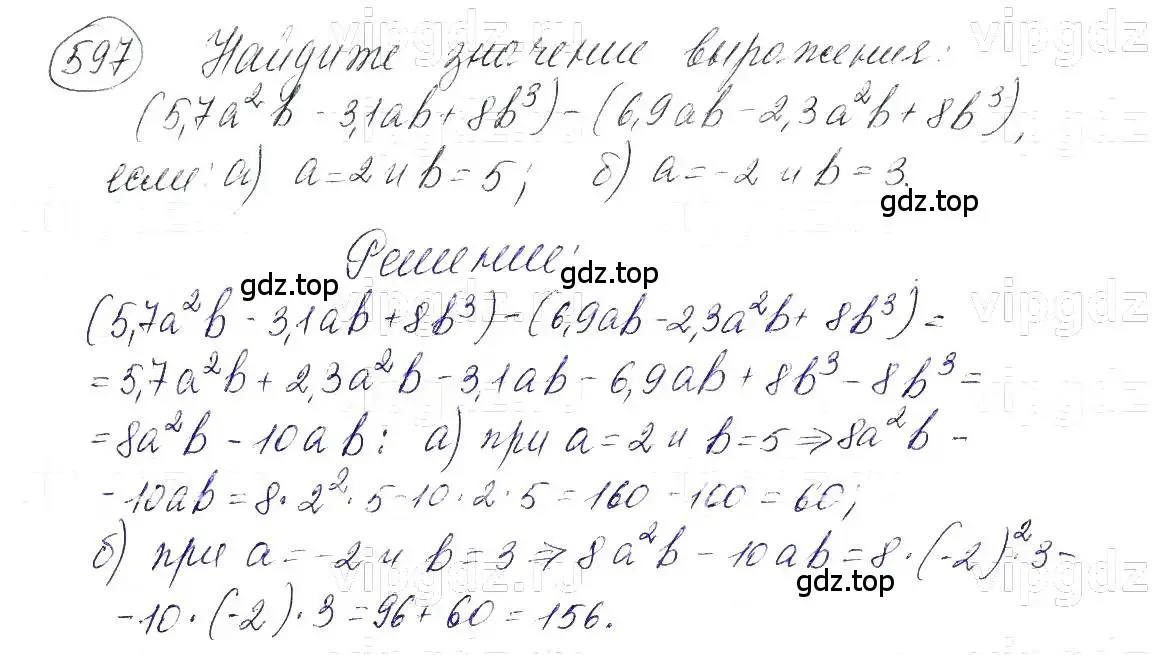 597 Найдите значение выражения:
(5,7a²b - 3,1ab + 8b³) - (6,9ab - 2,3a²b + 8b³),
если: а) a = 2 и b = 5; б) a = -2 и b = 3.
gdz.top
Решение:
gdz.top gdz.top
(5,7a²b - 3,1ab + 8b³) - (6,9ab - 2,3a²b + 8b³) =
= 5,7a²b + 2,3a²b - 3,1ab - 6,9ab + 8b³ - 8b³ =
= 8a²b - 10ab: а) при a = 2 и b = 5 ⇒ 8a²b -
- 10ab = 8 · 2² · 5 - 10 · 2 · 5 = 160 - 100 = 60;
б) при a = -2 и b = 3 ⇒ 8a²b - 10ab = 8 · (-2)² · 3 -
gdz.top
- 10 · (-2) · 3 = 96 + 60 = 156.